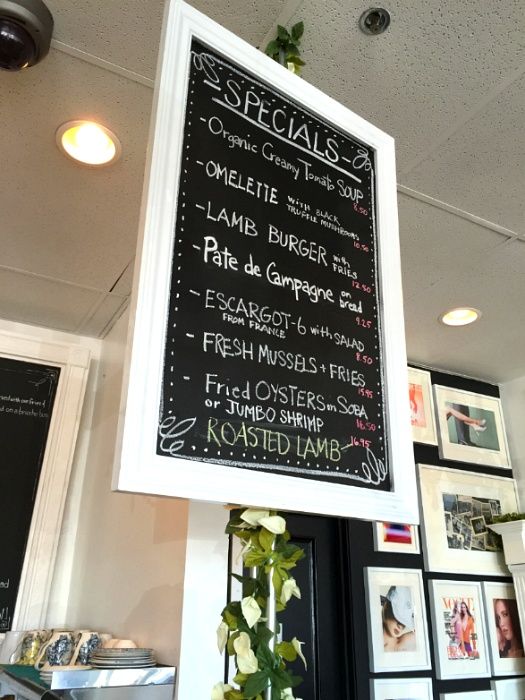 SPECIALS
- Organic Creamy Tomato SOUP
8.50
- OMELETTE with BLACK
TRUFFLE MUSHROOMS
10.50
- LAMB BURGER with
FRIES
12.50
- Pate de Campagne on
bread
9.25
- ESCARGOT-6 with SALAD
FROM FRANCE
8.50
- FRESH MUSSELS + FRIES
15.95
- Fried OYSTERS on SOBA
or JUMBO SHRIMP
16.50
ROASTED LAMB
16.95
VOGUE